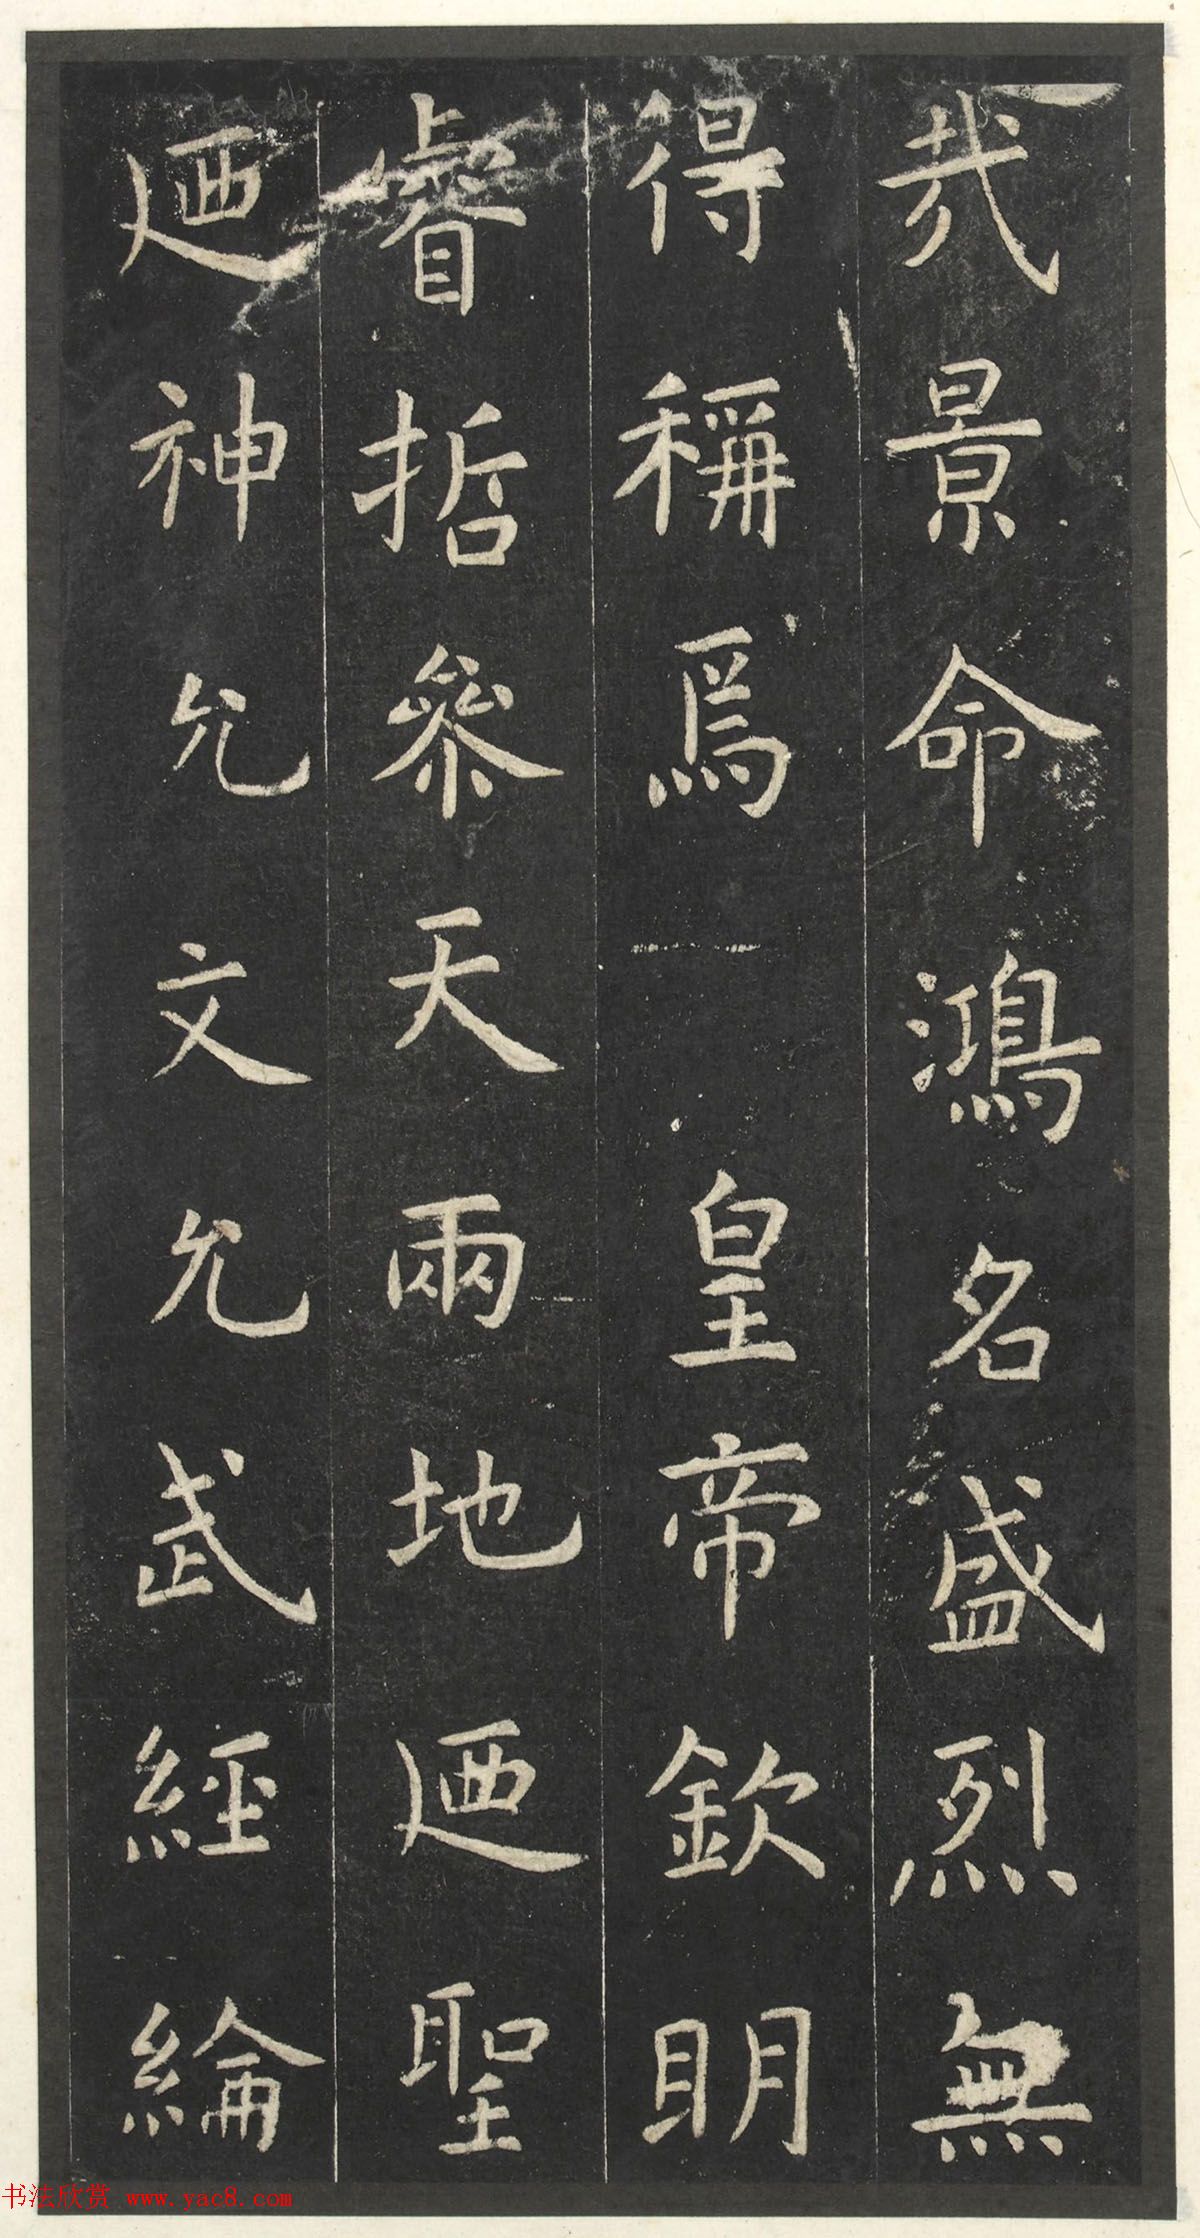 哉景命鴻名盛烈無
得稱焉皇帝欽明
睿哲參天兩地迺聖
迺神允文允武經綸
书法欣赏 www.yac8.com